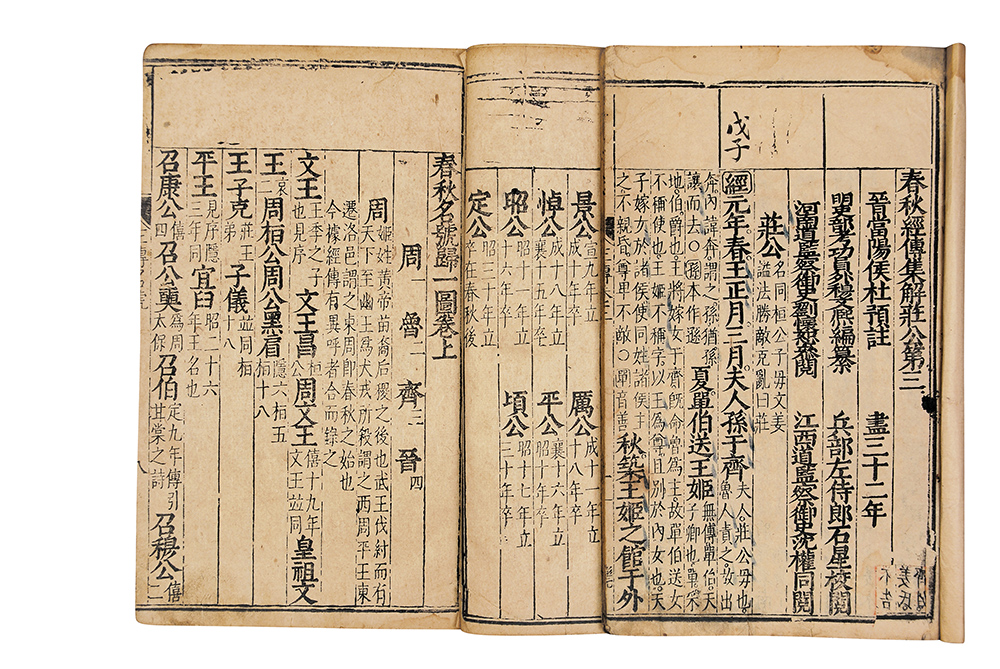 春秋經傳集解莊公第三
晉當陽侯杜預註 盡三十二年
明吏部考功員外穆文熙編纂 兵部左侍郎石星校閱
河南道監察御史劉懷恕參閱 江西道監察御史沈權同閱
莊公 名同桓公子母文姜
謚法勝敵克亂曰莊
戊子
經元年春王正月三月夫人孫于齊 夫人莊公母也
魯人責之故出
奔內諱奔謂之孫猶孫
讓而去〇孫本作遜 夏單伯送王姬 無傳單伯天
子卿也單采
地伯爵也王將嫁女于齊旣命魯爲主故單伯送女
不稱使也王姬不稱字以王爲尊且別於內女也天
子嫁女於諸侯使同姓諸侯主
之不親昏尊卑不敵〇單音善 秋築王姬之館于外
景公 宣九年立
成十年卒 厲公 成十年立
十八年卒
悼公 成十八年立
襄十五年卒 平公 襄十六年立
昭十年卒
昭公 昭十一年立
十六年卒 頃公 昭十七年立
三十年卒
定公 昭三十一年立
卒在春秋後
春秋名號歸一圖卷上
周一 魯二 齊三 晉四
周 姬姓黃帝苗裔后稷之後也武王伐紂而有
天下至幽王爲犬戎所殺謂之西周平王東
遷洛邑謂之東周即春秋之始也
今據經傳有異呼者合而錄之
文王 王季之子
也見序 文王昌 桓公 周文王 僖十九年
文王並同 皇祖文
王 哀二 周桓公周公黑肩 隱六桓五
桓十八
王子克 莊王
弟 子儀 並同桓
十八
平王 見序隱
三年同 宜臼 昭二十六
年王名也
召康公 僖四 召公奭 爲周
太保 召伯 定九年傳引
甘棠之詩 召穆公 僖二